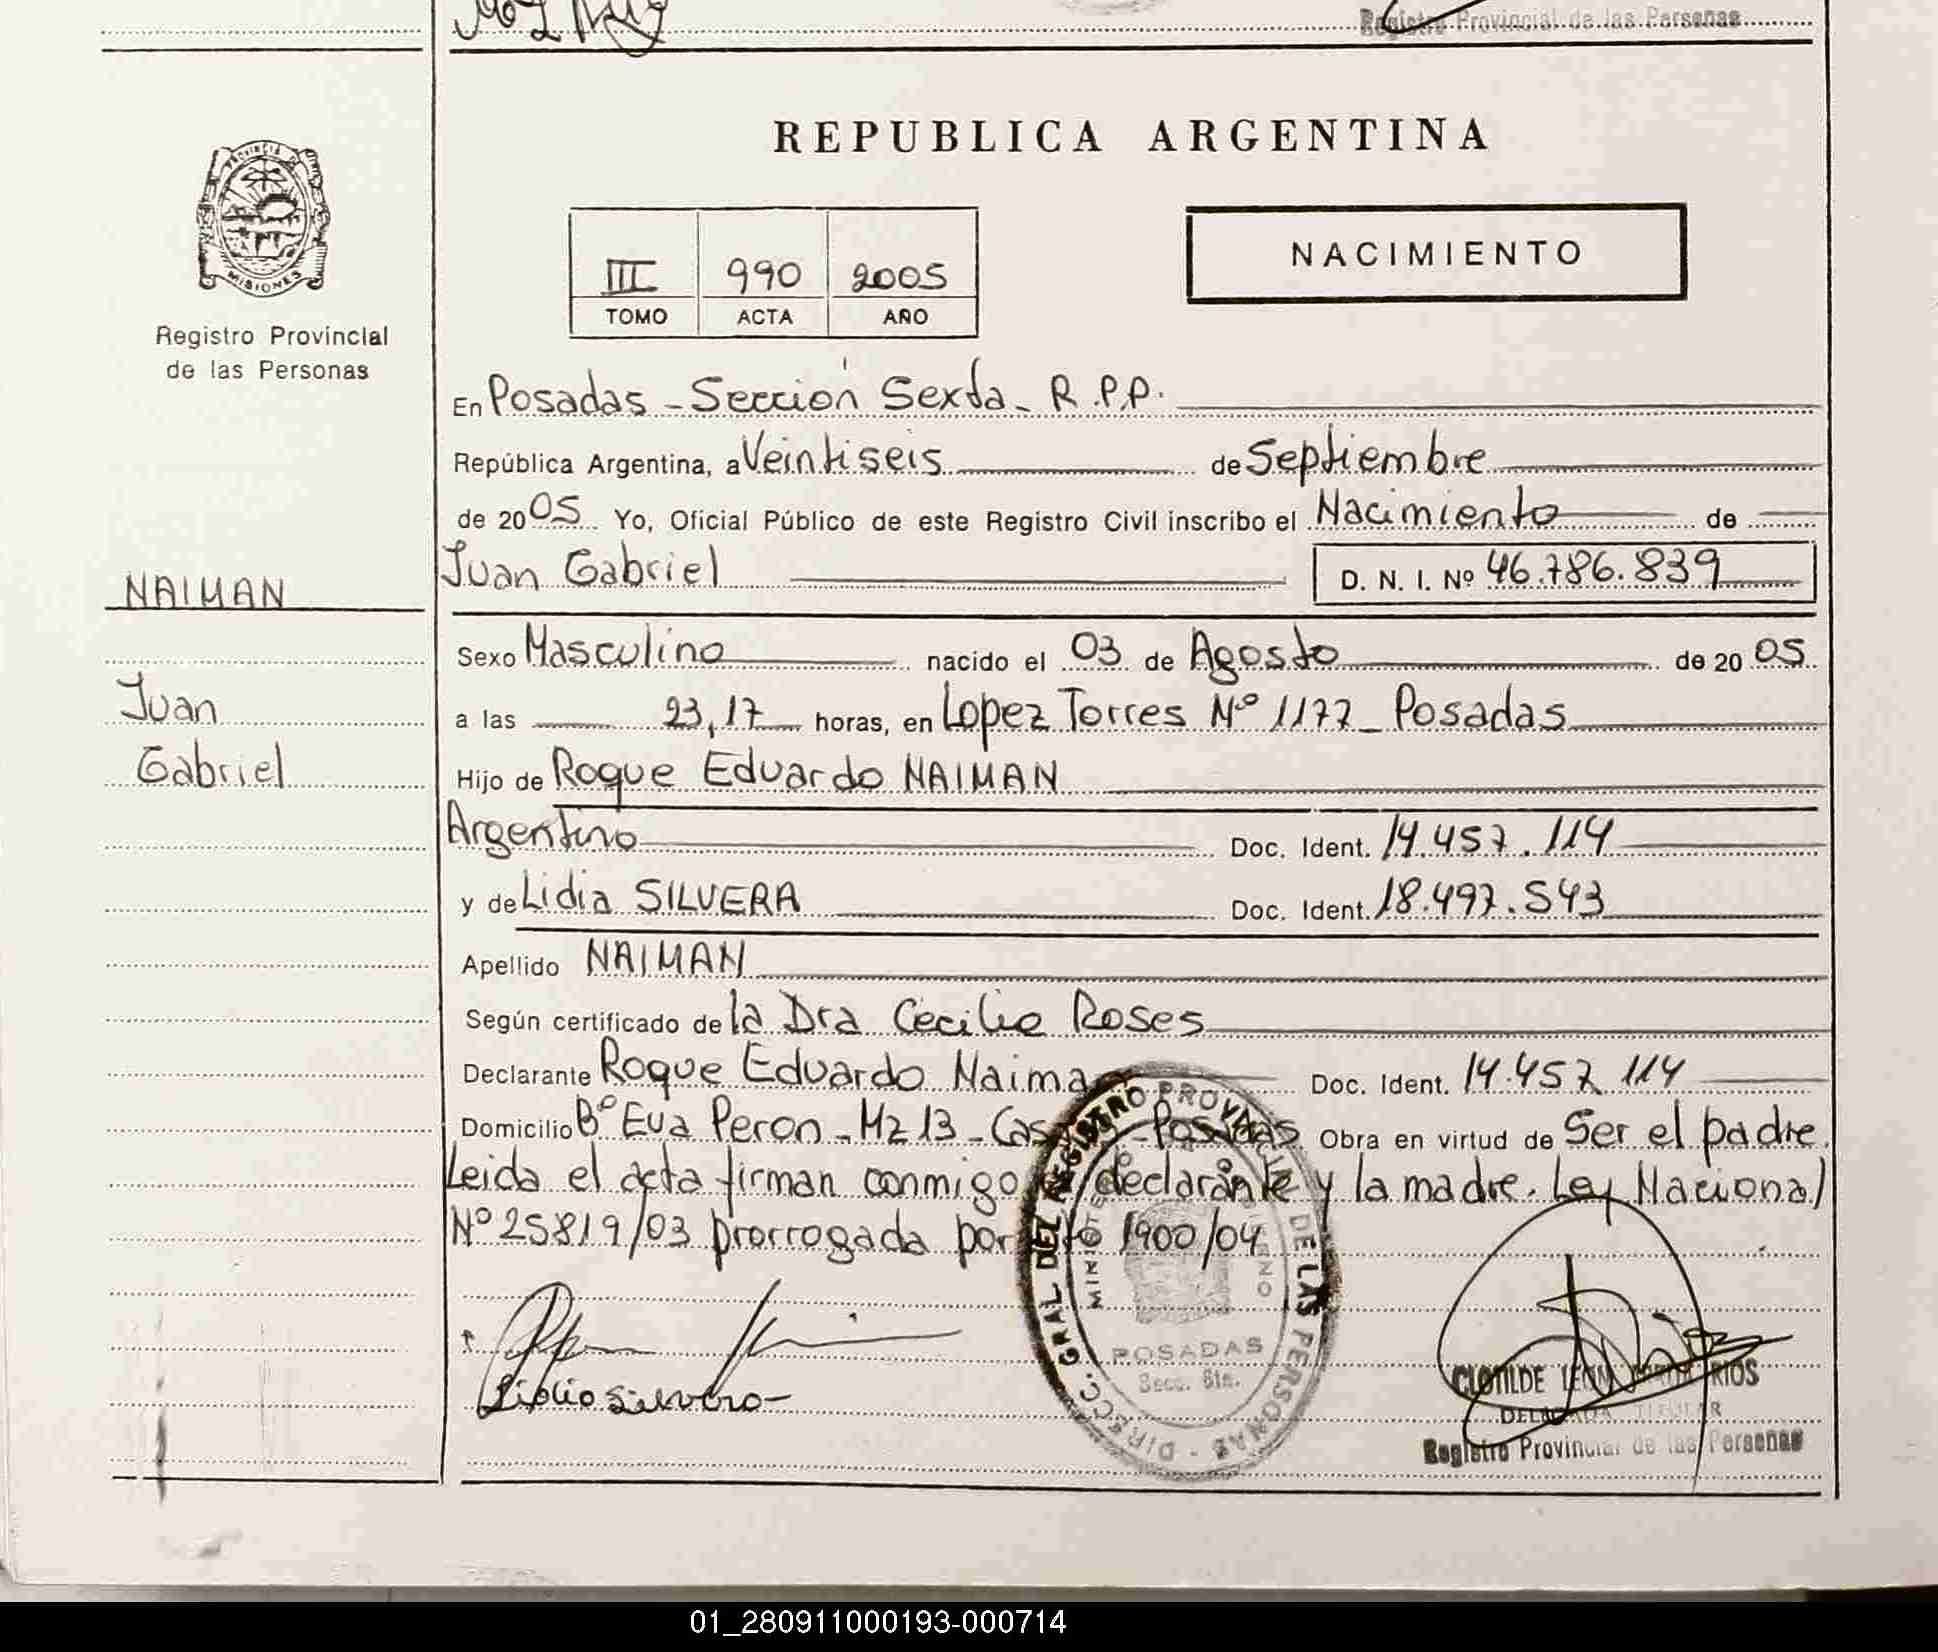 Registro Provincial de las Personas
REPUBLICA ARGENTINA
PROVINCIA DE
MISIONES
Registro Provincial
de las Personas
III 990 2005
TOMO ACTA AÑO
NACIMIENTO
En Posadas - Sección Sexta - R.P.P.
República Argentina, a Veintiseis de Septiembre
de 2005 Yo, Oficial Público de este Registro Civil inscribo el Nacimiento de
Juan Gabriel D. N. I. Nº 46.786.839
NAIMAN
Juan
Gabriel
Sexo Masculino nacido el 03 de Agosto de 2005
a las 23,17 horas, en Lopez Torres Nº 1177 - Posadas
Hijo de Roque Eduardo NAIMAN
Argentino Doc. Ident. 14.457.114
y de Lidia SILVERA Doc. Ident. 18.497.543
Apellido NAIMAN
Según certificado de la Dra Cecilia Roses
Declarante Roque Eduardo Naiman Doc. Ident. 14.457.114
Domicilio Bº Eva Peron - Mz 13 - Posadas Obra en virtud de Ser el padre.
Leida el acta firman conmigo declarante y la madre. Ley Nacional
Nº 25819/03 prorrogada por 1900/04
DIRECC. GRAL DEL REGISTRO PROVINCIAL DE LAS PERSONAS
POSADAS
Secc. 6ta.
Lidia Silvera
CLOTILDE RIOS
DELEGADA TITULAR
Registro Provincial de las Personas
01_280911000193-000714